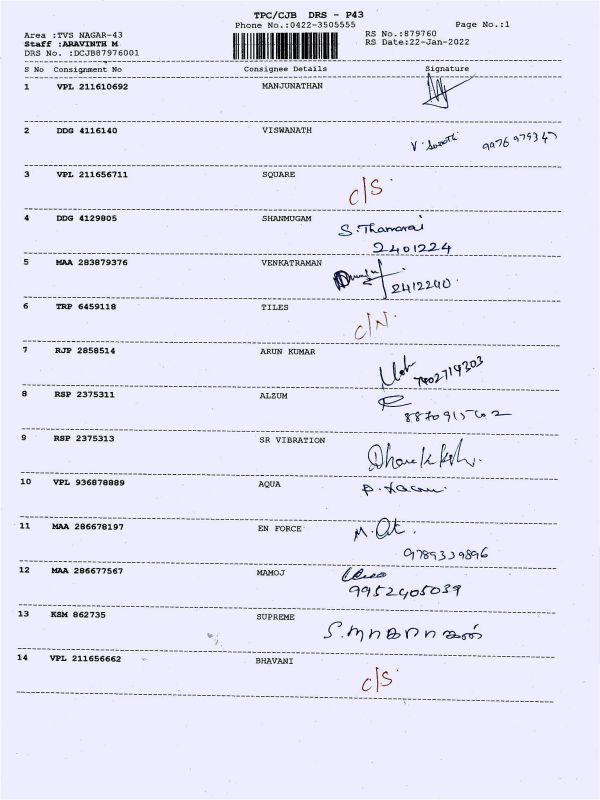 TPC/CJB DRS - P43
Phone No.:0422-3505555 Page No.:1
Area :TVS NAGAR-43 RS No.:879760
Staff :ARAVINTH M RS Date:22-Jan-2022
DRS No. :DCJB87976001
S No Consignment No Consignee Details Signature
1 VPL 211610692 MANJUNATHAN
2 DDG 4116140 VISWANATH 9976979347
3 VPL 211656711 SQUARE C/S.
4 DDG 4129805 SHANMUGAM S. Thamarai
2401224
5 MAA 283879376 VENKATRAMAN 2412240
6 TRP 6459118 TILES C/N.
7 RJP 2858514 ARUN KUMAR
7402714303
8 RSP 2375311 ALZUM
9 RSP 2375313 SR VIBRATION
10 VPL 936878889 AQUA
11 MAA 286678197 EN FORCE
9789339896
12 MAA 286677567 MAMOJ
9952405039
13 KSM 862735 SUPREME
14 VPL 211656662 BHAVANI C/S.